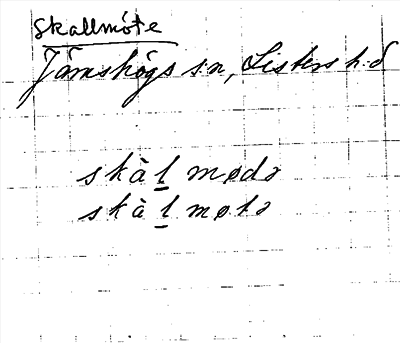 Skallmöte
Jämshögs sn, Listers h:d
skàḻ mødə
skàḻ møtə